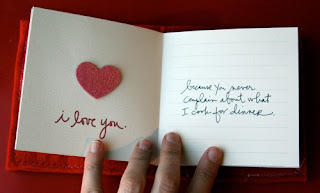 i love you.
because you never
complain about what
I cook for dinner.